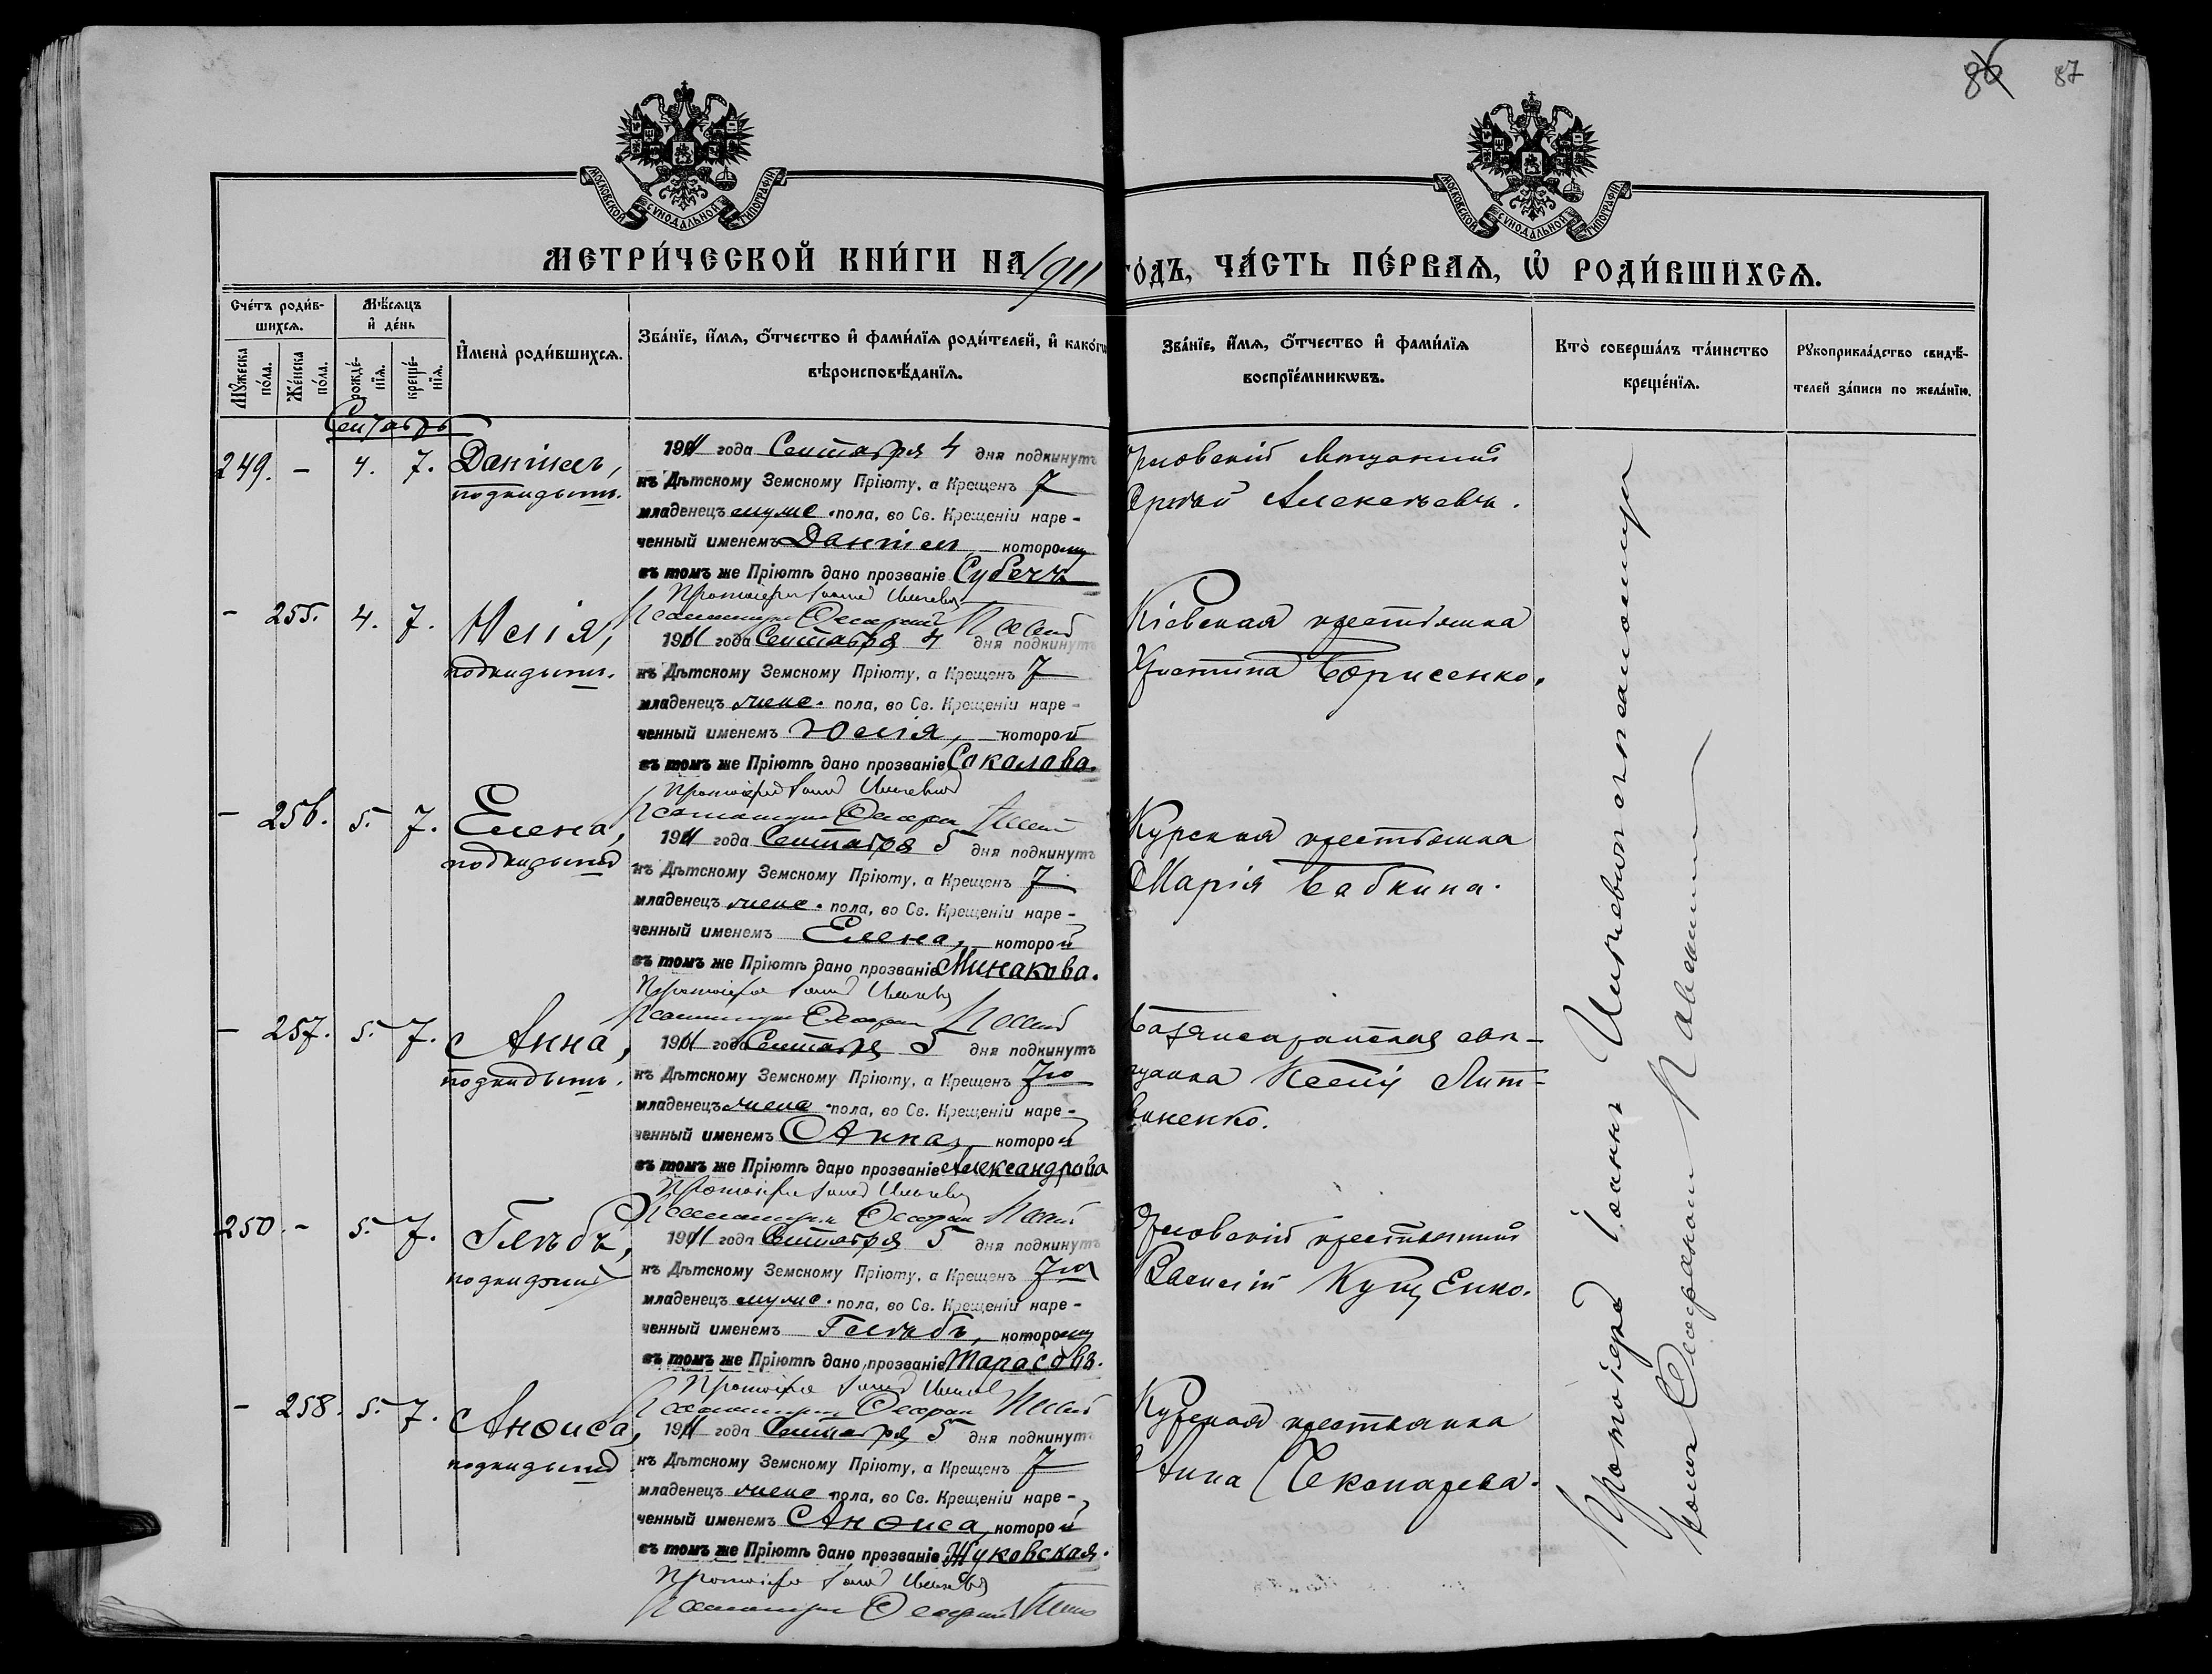 86 87
МОСКОВСКОЙ СУНОДАЛЬНОЙ ТИПОГРАФІИ
МОСКОВСКОЙ СУНОДАЛЬНОЙ ТИПОГРАФІИ
МЕТРИ́ЧЕСКОЙ КНИ́ГИ НА 1911 ГО́ДЪ, ЧА́СТЬ ПЕ́РВАѦ, Ѡ҆ РОДИ́ВШИХСѦ.
Сче́тъ роди́в-
шихсѧ.
Мꙋ́жеска по́ла.
Же́нска по́ла.
Мѣ́сѧцъ
и҆ де́нь
рожде́-
нїѧ.
креще́-
нїѧ.
И҆мена̀ роди́вшихсѧ.
Зва́нїе, и҆́мѧ, ѻ҆́тчество и҆ фами́лїѧ роди́телей, и҆ како́гѡ
вѣроисповѣ́данїѧ.
Зва́нїе, и҆́мѧ, ѻ҆́тчество и҆ фами́лїѧ
воспрїе́мникѡвъ.
Кто̀ соверша́лъ та́инство
креще́нїѧ.
Рꙋкоприкла́дство свидѣ́-
телей за́писи по жела́нїю.
Сентябрь
249. – 4. 7. Даніилъ,
подкидышъ.
1911 года Сентября 4 дня подкинутъ
къ Дѣтскому Земскому Пріюту, а Крещенъ 7
младенецъ муже. пола, во Св. Крещеніи наре-
ченный именемъ Даніилъ которому
въ томъ же Пріютѣ дано прозваніе
Протоіерей Іоаннъ
мѣщанинъ
Сергѣй Алексѣевъ.
– 255. 4. 7. Юлія,
подкидышъ.
1911 года Сентября 4 дня подкинутъ
къ Дѣтскому Земскому Пріюту, а Крещенъ 7
младенецъ женс. пола, во Св. Крещеніи наре-
ченный именемъ Юлія, которой
въ томъ же Пріютѣ дано прозваніе Соколова.
Протоіерей Іоаннъ
Кіевская крестьянка
Христина Борисенко.
– 256. 5. 7. Елена,
подкидышъ
1911 года Сентября 5 дня подкинутъ
къ Дѣтскому Земскому Пріюту, а Крещенъ 7
младенецъ женс. пола, во Св. Крещеніи наре-
ченный именемъ Елена, которой
въ томъ же Пріютѣ дано прозваніе Минакова.
Протоіерей Іоаннъ
Курская крестьянка
Марія Бабкина.
– 257. 5. 7. Анна,
подкидышъ.
1911 года Сентября 5 дня подкинутъ
къ Дѣтскому Земскому Пріюту, а Крещенъ 7го
младенецъ женс. пола, во Св. Крещеніи наре-
ченный именемъ Анна, которой
въ томъ же Пріютѣ дано прозваніе Александрова
Протоіерей Іоаннъ
Лит-
виненко.
250. – 5. 7. Глѣбъ,
подкидышъ
1911 года Сентября 5 дня подкинутъ
къ Дѣтскому Земскому Пріюту, а Крещенъ 7го
младенецъ муже. пола, во Св. Крещеніи наре-
ченный именемъ Глѣбъ, которому
въ томъ же Пріютѣ дано прозваніе Тарасовъ.
Протоіерей Іоаннъ
Орловскій крестьянинъ
Василій Кущенко.
– 258. 5. 7. Анѳиса,
подкидышъ
1911 года Сентября 5 дня подкинутъ
къ Дѣтскому Земскому Пріюту, а Крещенъ 7
младенецъ женс. пола, во Св. Крещеніи наре-
ченный именемъ Анѳиса, которой
въ томъ же Пріютѣ дано прозваніе Жуковская.
Протоіерей Іоаннъ
Курская крестьянка
Анна
Протоіерей Іоаннъ съ псаломщи-
комъ